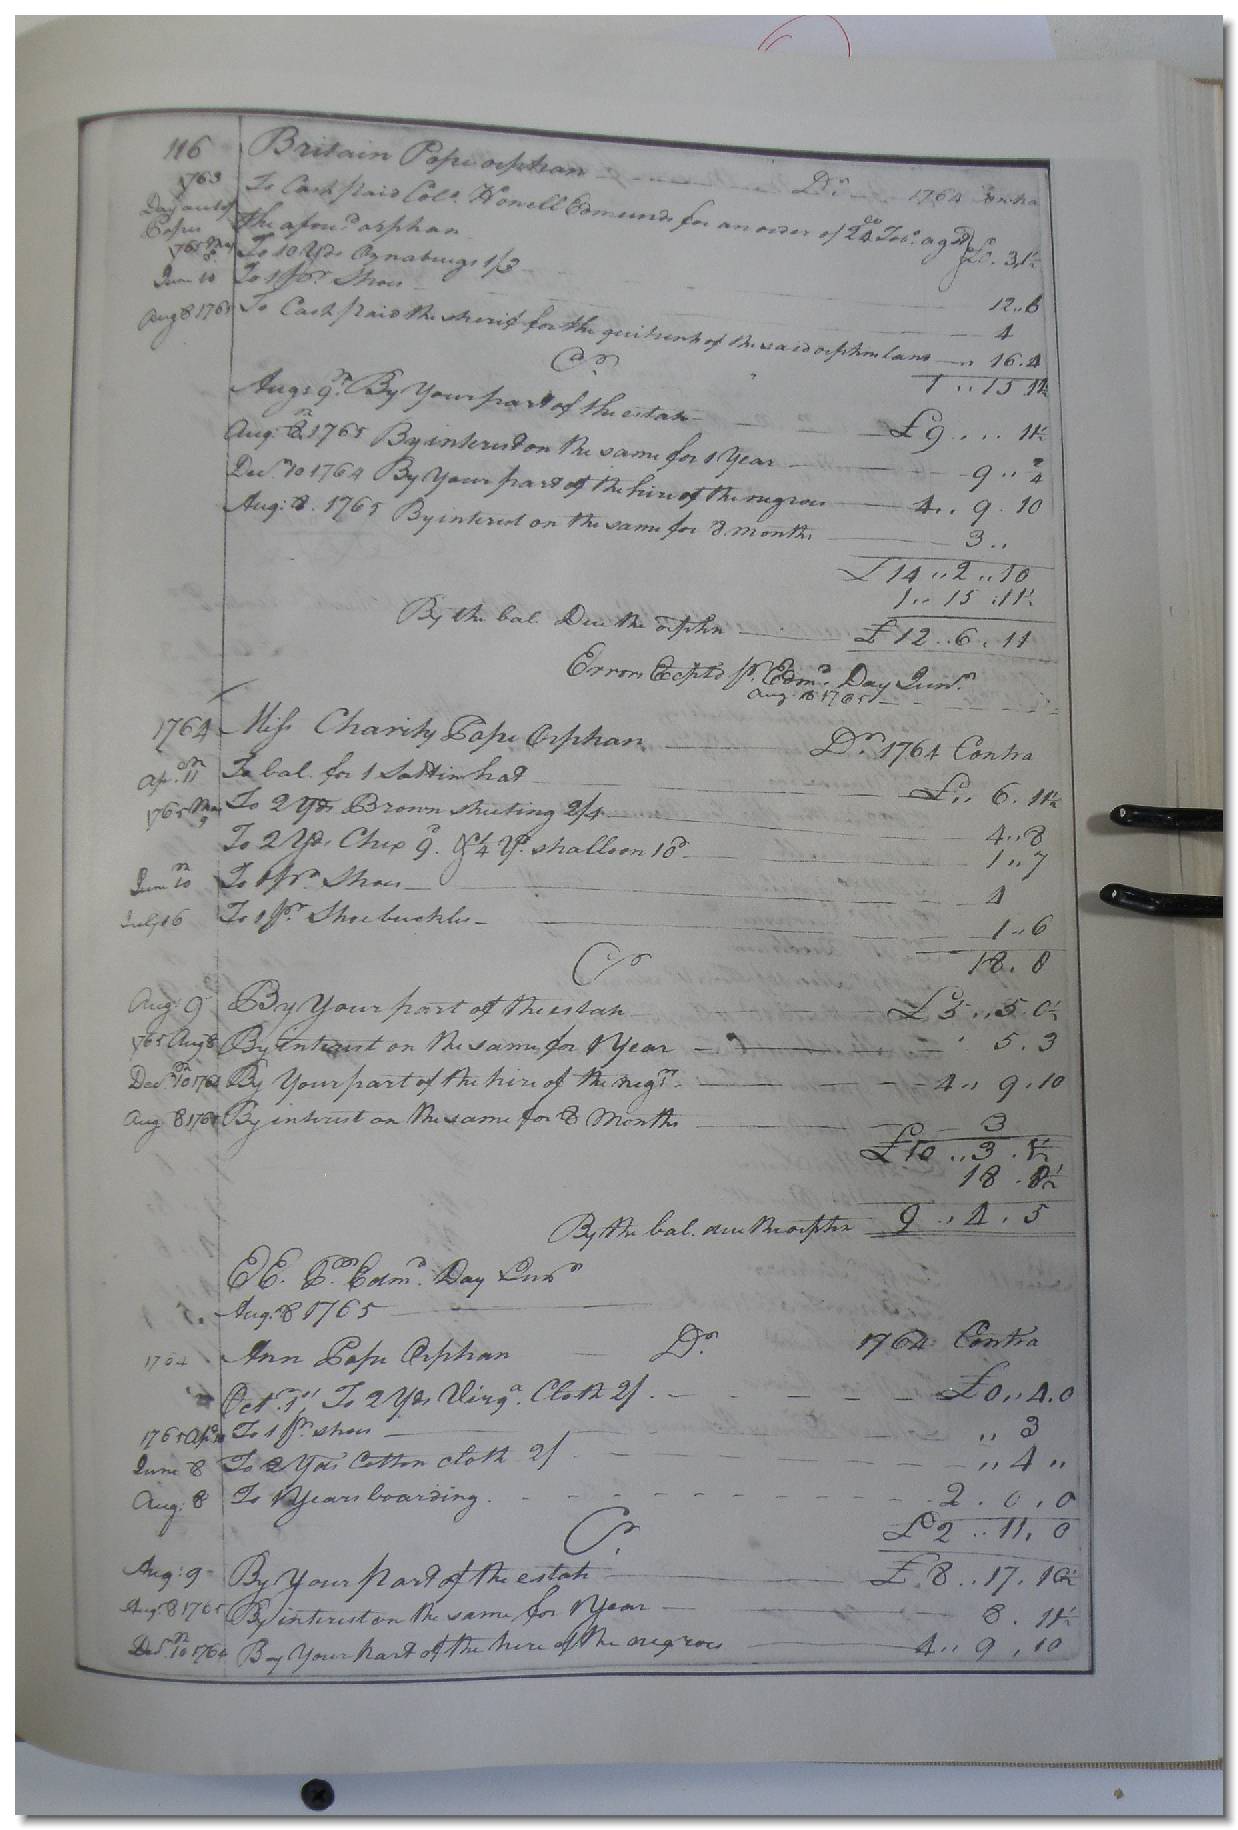 116 Britain Pope orphan Dr. 1764 Contra
1763 To Cash paid Colo. Howell Edmunds for an order of 24 Tobo. agst
Day acct of the afoured. orphan £0. 3. 1½
Popes
1765 May To 10 Yds Oznabrugs 1/3 12..6
June 10 To 1 pr. Shoes 4
Aug 8 1765 To Cash paid the sherif for the quitrent of the said orphns land 16.4
Cr. 1..15 11½
Augt 9th. By Your part of the estate £9 ... 11½
Aug. 8. 1765 By interest on the same for 1 Year 9..
Decr. 10 1764 By Your part of the hire of the negroes 4.. 9. 10
Aug: 8. 1765 By interest on the same for 8 months 3..
£14..2..10
1..15.11½
By the bal. Due the orphn £12..6.11
Errors Excptd pr. Edmd. Day Junr.
Aug. 8 1765
1764 Miss Charity Pope Orphan Dr. 1764 Contra
Ap. 11 To bal. for 1 Sattin hat £.. 6. 11½
1765 May 9 To 2 Yds Brown sheeting 2/4 4..8
To 2 Yds. Chex 9d. & ¼ Yd. shalloon 10d. 1..7
June 10 To 1 pr. Shoes 4
July 16 To 1 pr. Shoebuckles 1..6
Cr 18. 8
Aug: 9 By Your part of the estate £5..5.0½
1765 Aug 8 By interest on the same for 1 Year 5. 3
Decr. 10 1764 By Your part of the hire of the negrs. 4.. 9.10
Aug. 8 1765 By interest on the same for 8 Months 3
£10..3.1½
18.8½
By the bal. due the orphn 9..4.5
EE. Pr. Edmd. Day Junr
Aug. 8 1765
1764 Ann Pope Orphan Dr. 1764 Contra
Oct. 1st. To 2 Yds Virga. Cloth 2/. £0..4.0
1765 Ap. To 1 pr. shoes .. 3
June 8 To 2 Yds Cotton cloth 2/ .. 4 ..
Aug. 8 To 1 Years boarding. 2. 0. 0
Cr. £2..11. 0
Aug: 9 By Your part of the estate £8..17.10½
Aug. 8 1765 By interest on the same for 1 Year 8. 11½
Decr. 10 1764 By Your part of the hire of the negroes 4.. 9.10